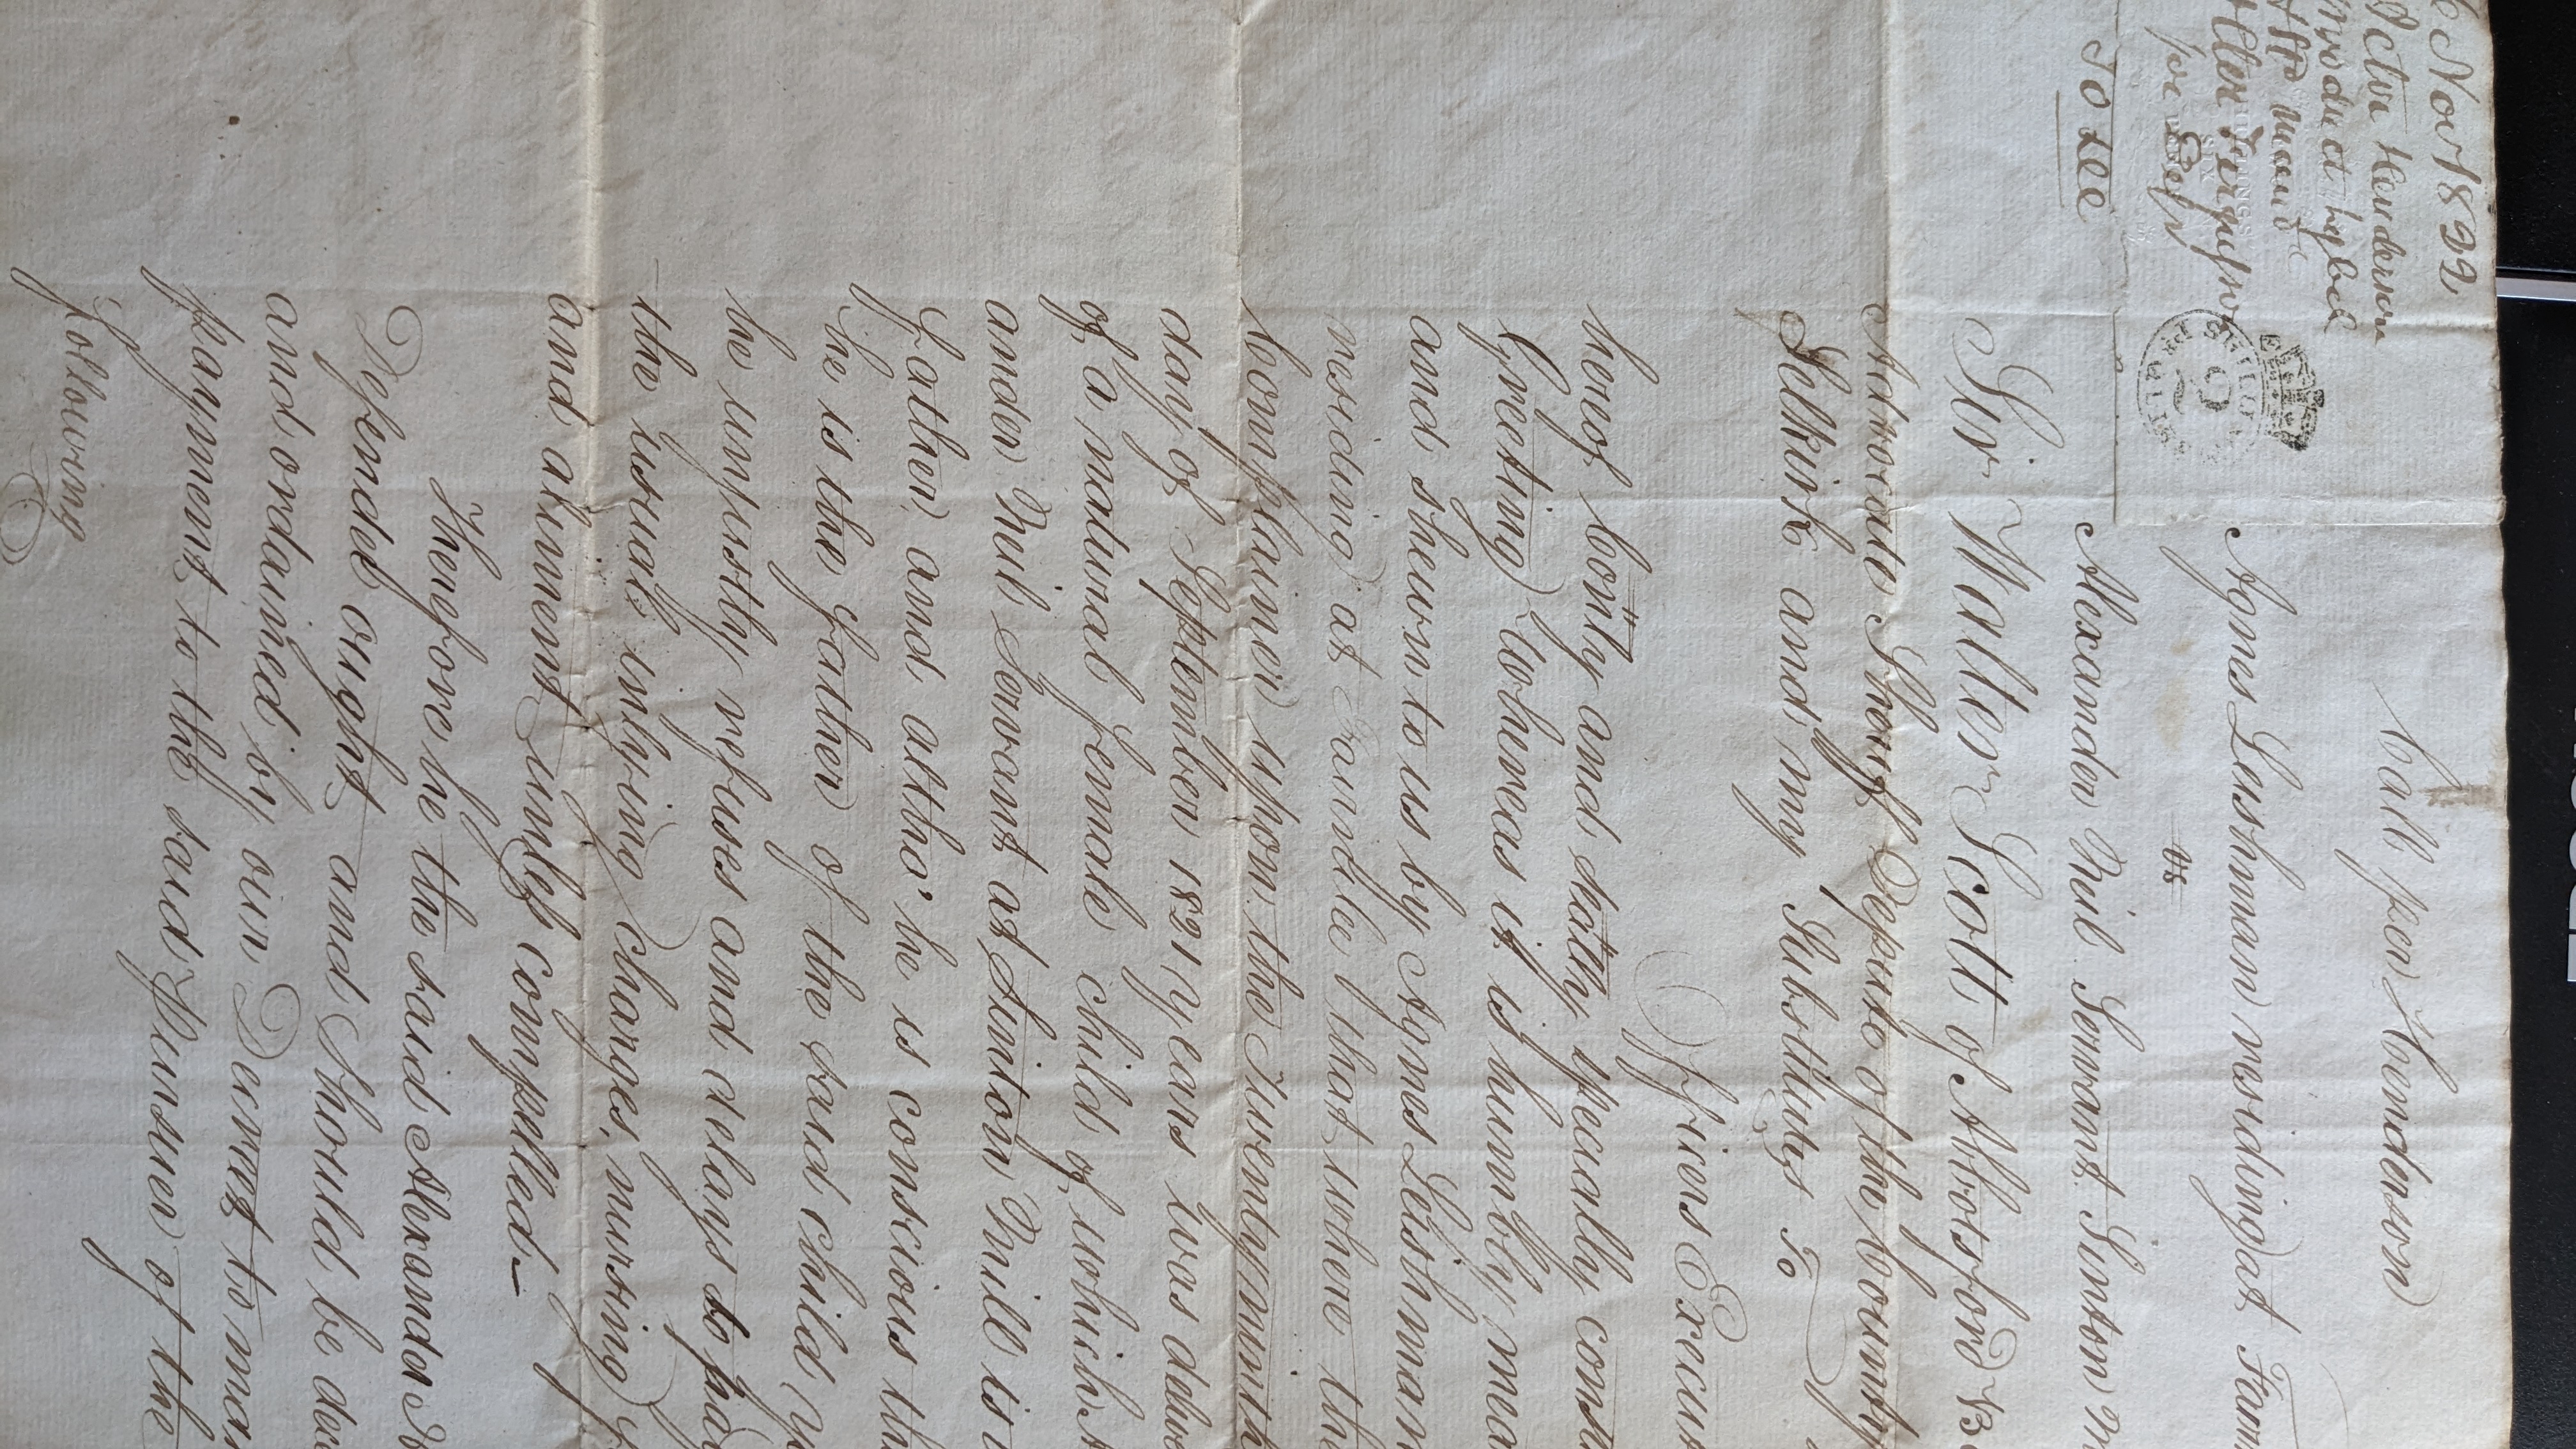 Nov 1822
Actn Henderson
Walter Ferguson
for Defr
To see
Call per Henderson
Agnes Leishman residing at
vs
Alexander Neil Servant Sinton
Sir Walter Scott of Abbotsford
Advocate Sheriff Depute of the County
Selkirk and my Substitutes To
Officers
hereof Coñtly and Sãtly specially
Greeting Whereas it is humbly
and shewn to us by Agnes Leishman
residing at that where
Complainer upon the
day of September 1821 years was
of a natural female child of which
ander Neil Servant at Sinton Mill is
father and altho' he is conscious
he is the father of the said child
he unjustly refuses and delays to
the usual inlying charges, nursing
and aliment unless compelled—
Therefore he the said Alexander
Defender ought and Should be
and ordained by our Decreet to
payment to the said Pursuer of the
following